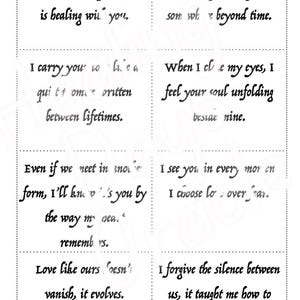 is healing with you.
somewhere beyond time.
I carry your like a
quiet written
between lifetimes.
When I close my eyes, I
feel your soul unfolding
beside mine.
Even if we meet in another
form, I'll know it's you by
the way my heart
remembers.
I see you in every moment
I choose love over fear.
Love like ours doesn't
vanish, it evolves.
I forgive the silence between
us, it taught me how to